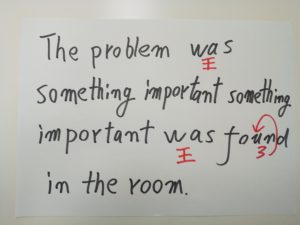 The problem was
王
something important something
important was found
王 3
in the room.